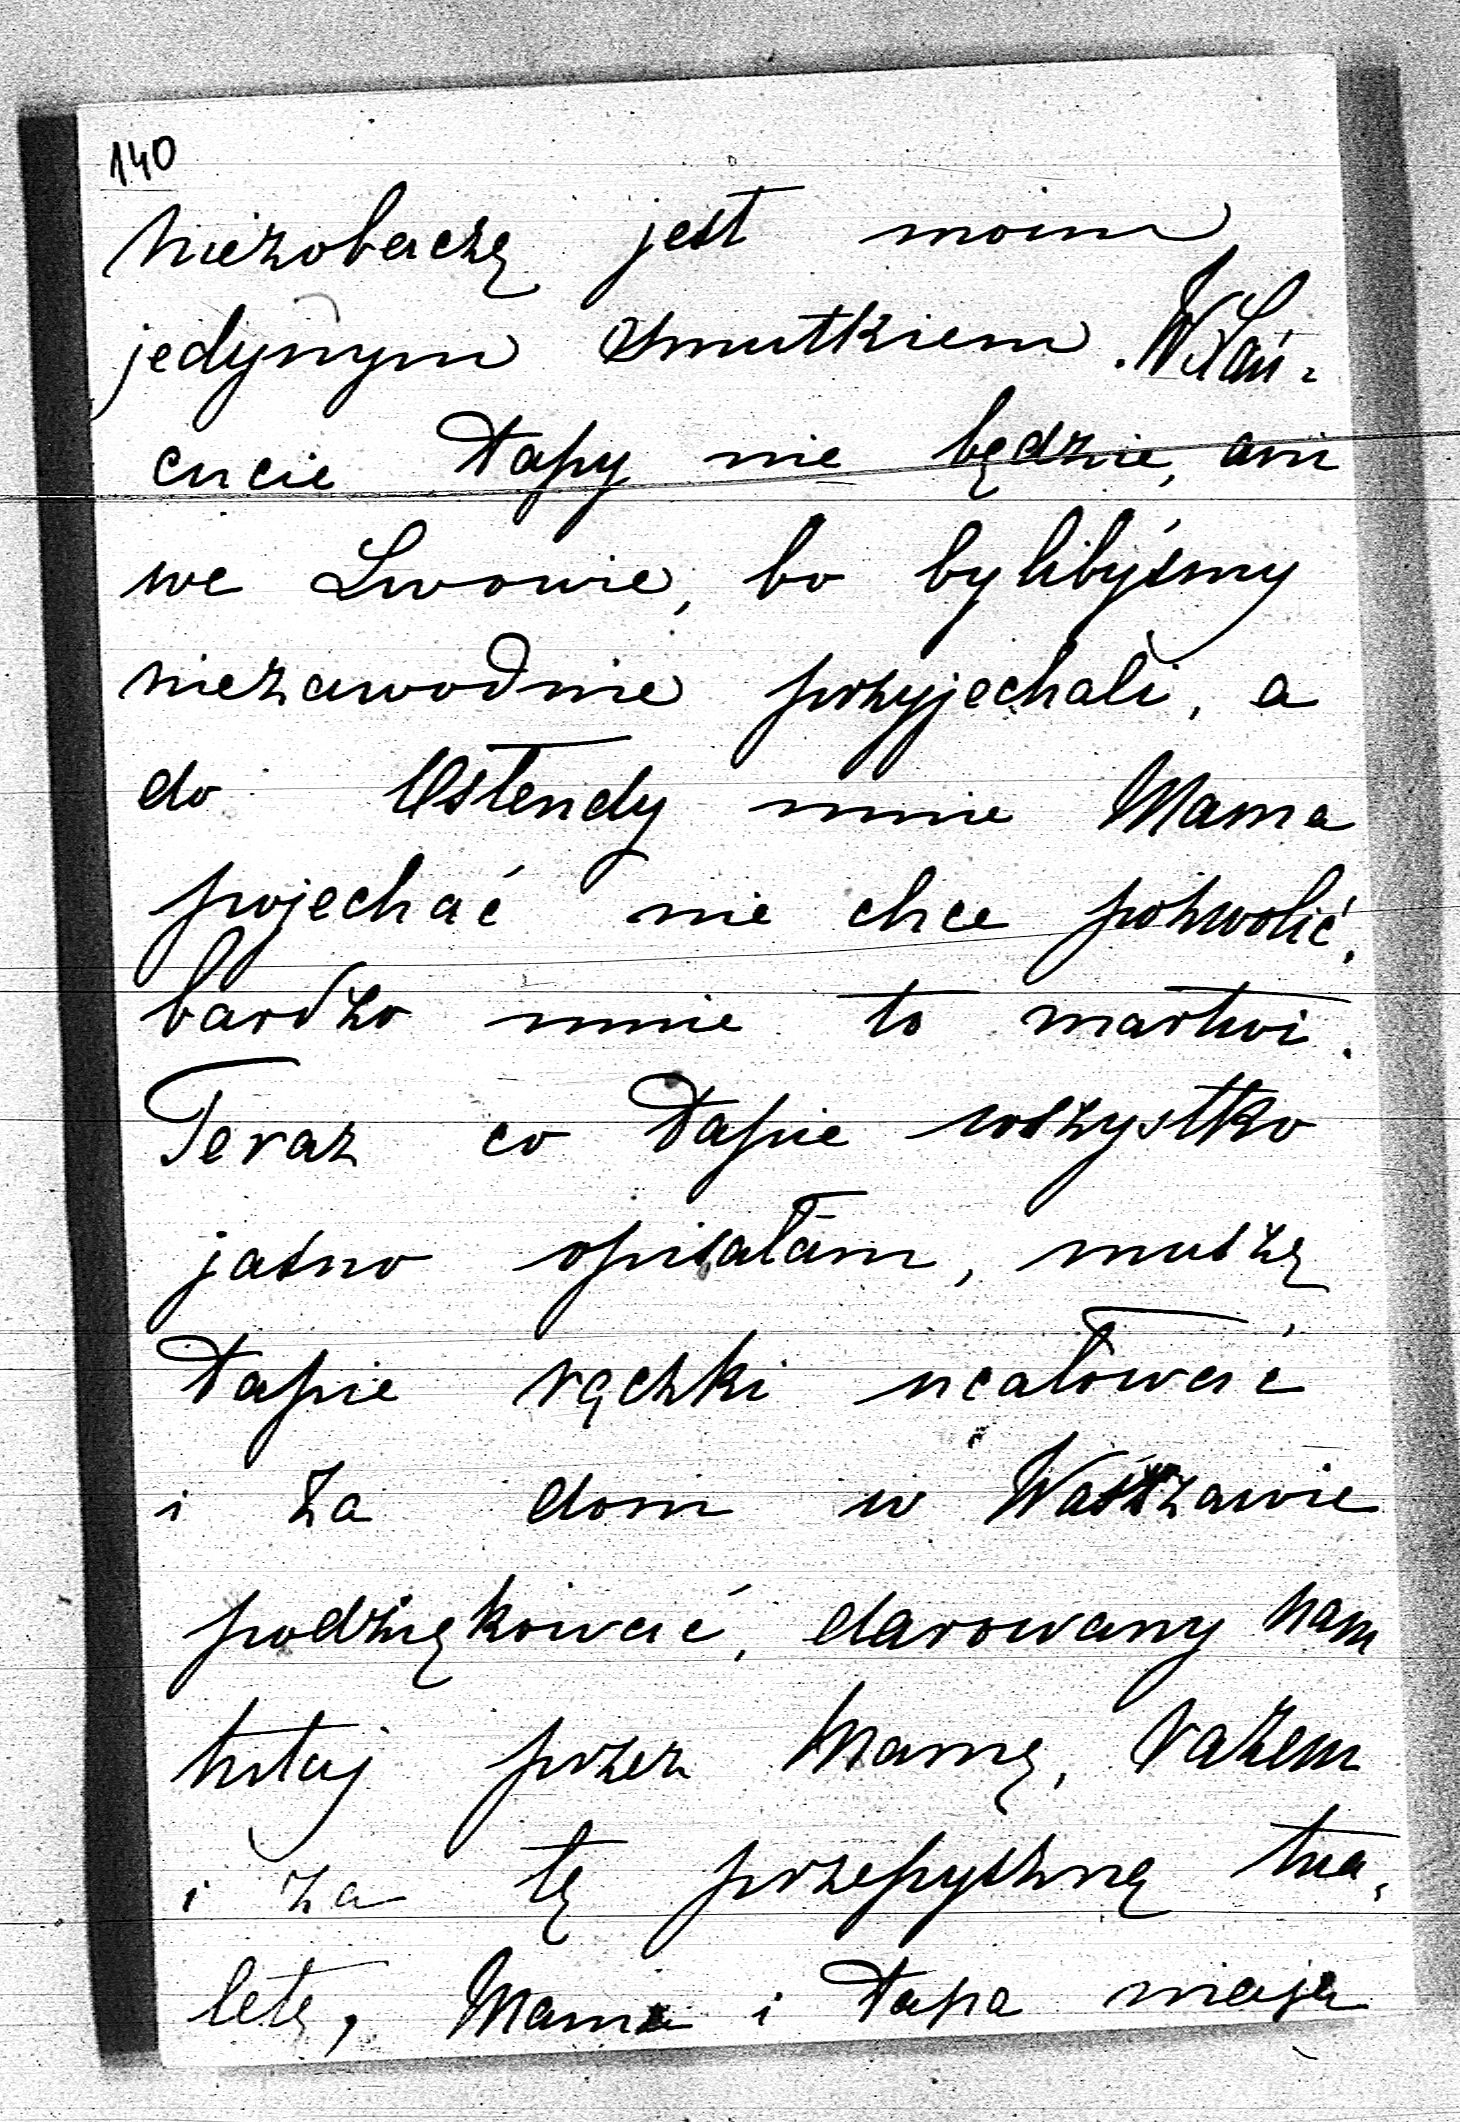 140
niezobaczę jest moim
jedynym smutkiem. W Łań-
cucie Papy nie będzie, ani
we Lwowie, bo bylibyśmy
niezawodnie przyjechali, a
do Ostendy mnie Mama
pojechać nie chce pozwolić,
bardzo mnie to martwi.
Teraz co Papie wszystko
jasno opisałam, muszę
Papie rączki ucałować
i za dom w Warszawie
podziękować, darowany nam
tutaj przez Mamę, razem
i za tę przepyszną tua-
letę, Mama i Papa mają